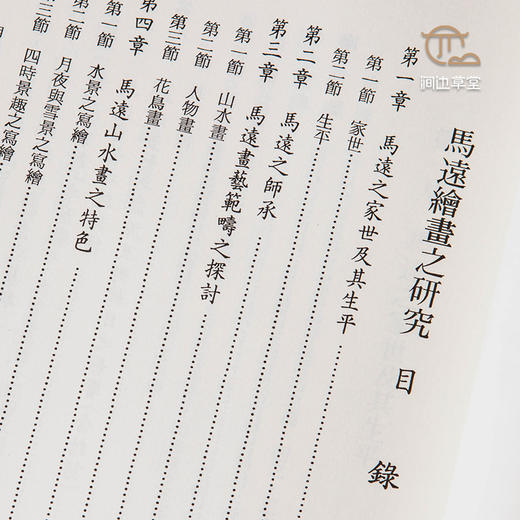 馬遠繪畫之研究 目 錄
第一章 馬遠之家世及其生平
第一節 家世
第二節 生平
第二章 馬遠之師承
第三章 馬遠畫藝範疇之探討
第一節 山水畫
第二節 人物畫
第三節 花鳥畫
第四章 馬遠山水畫之特色
第一節 水景之寫繪
第二節 月夜與雪景之寫繪
第三節 四時景趣之寫繪
間边草堂